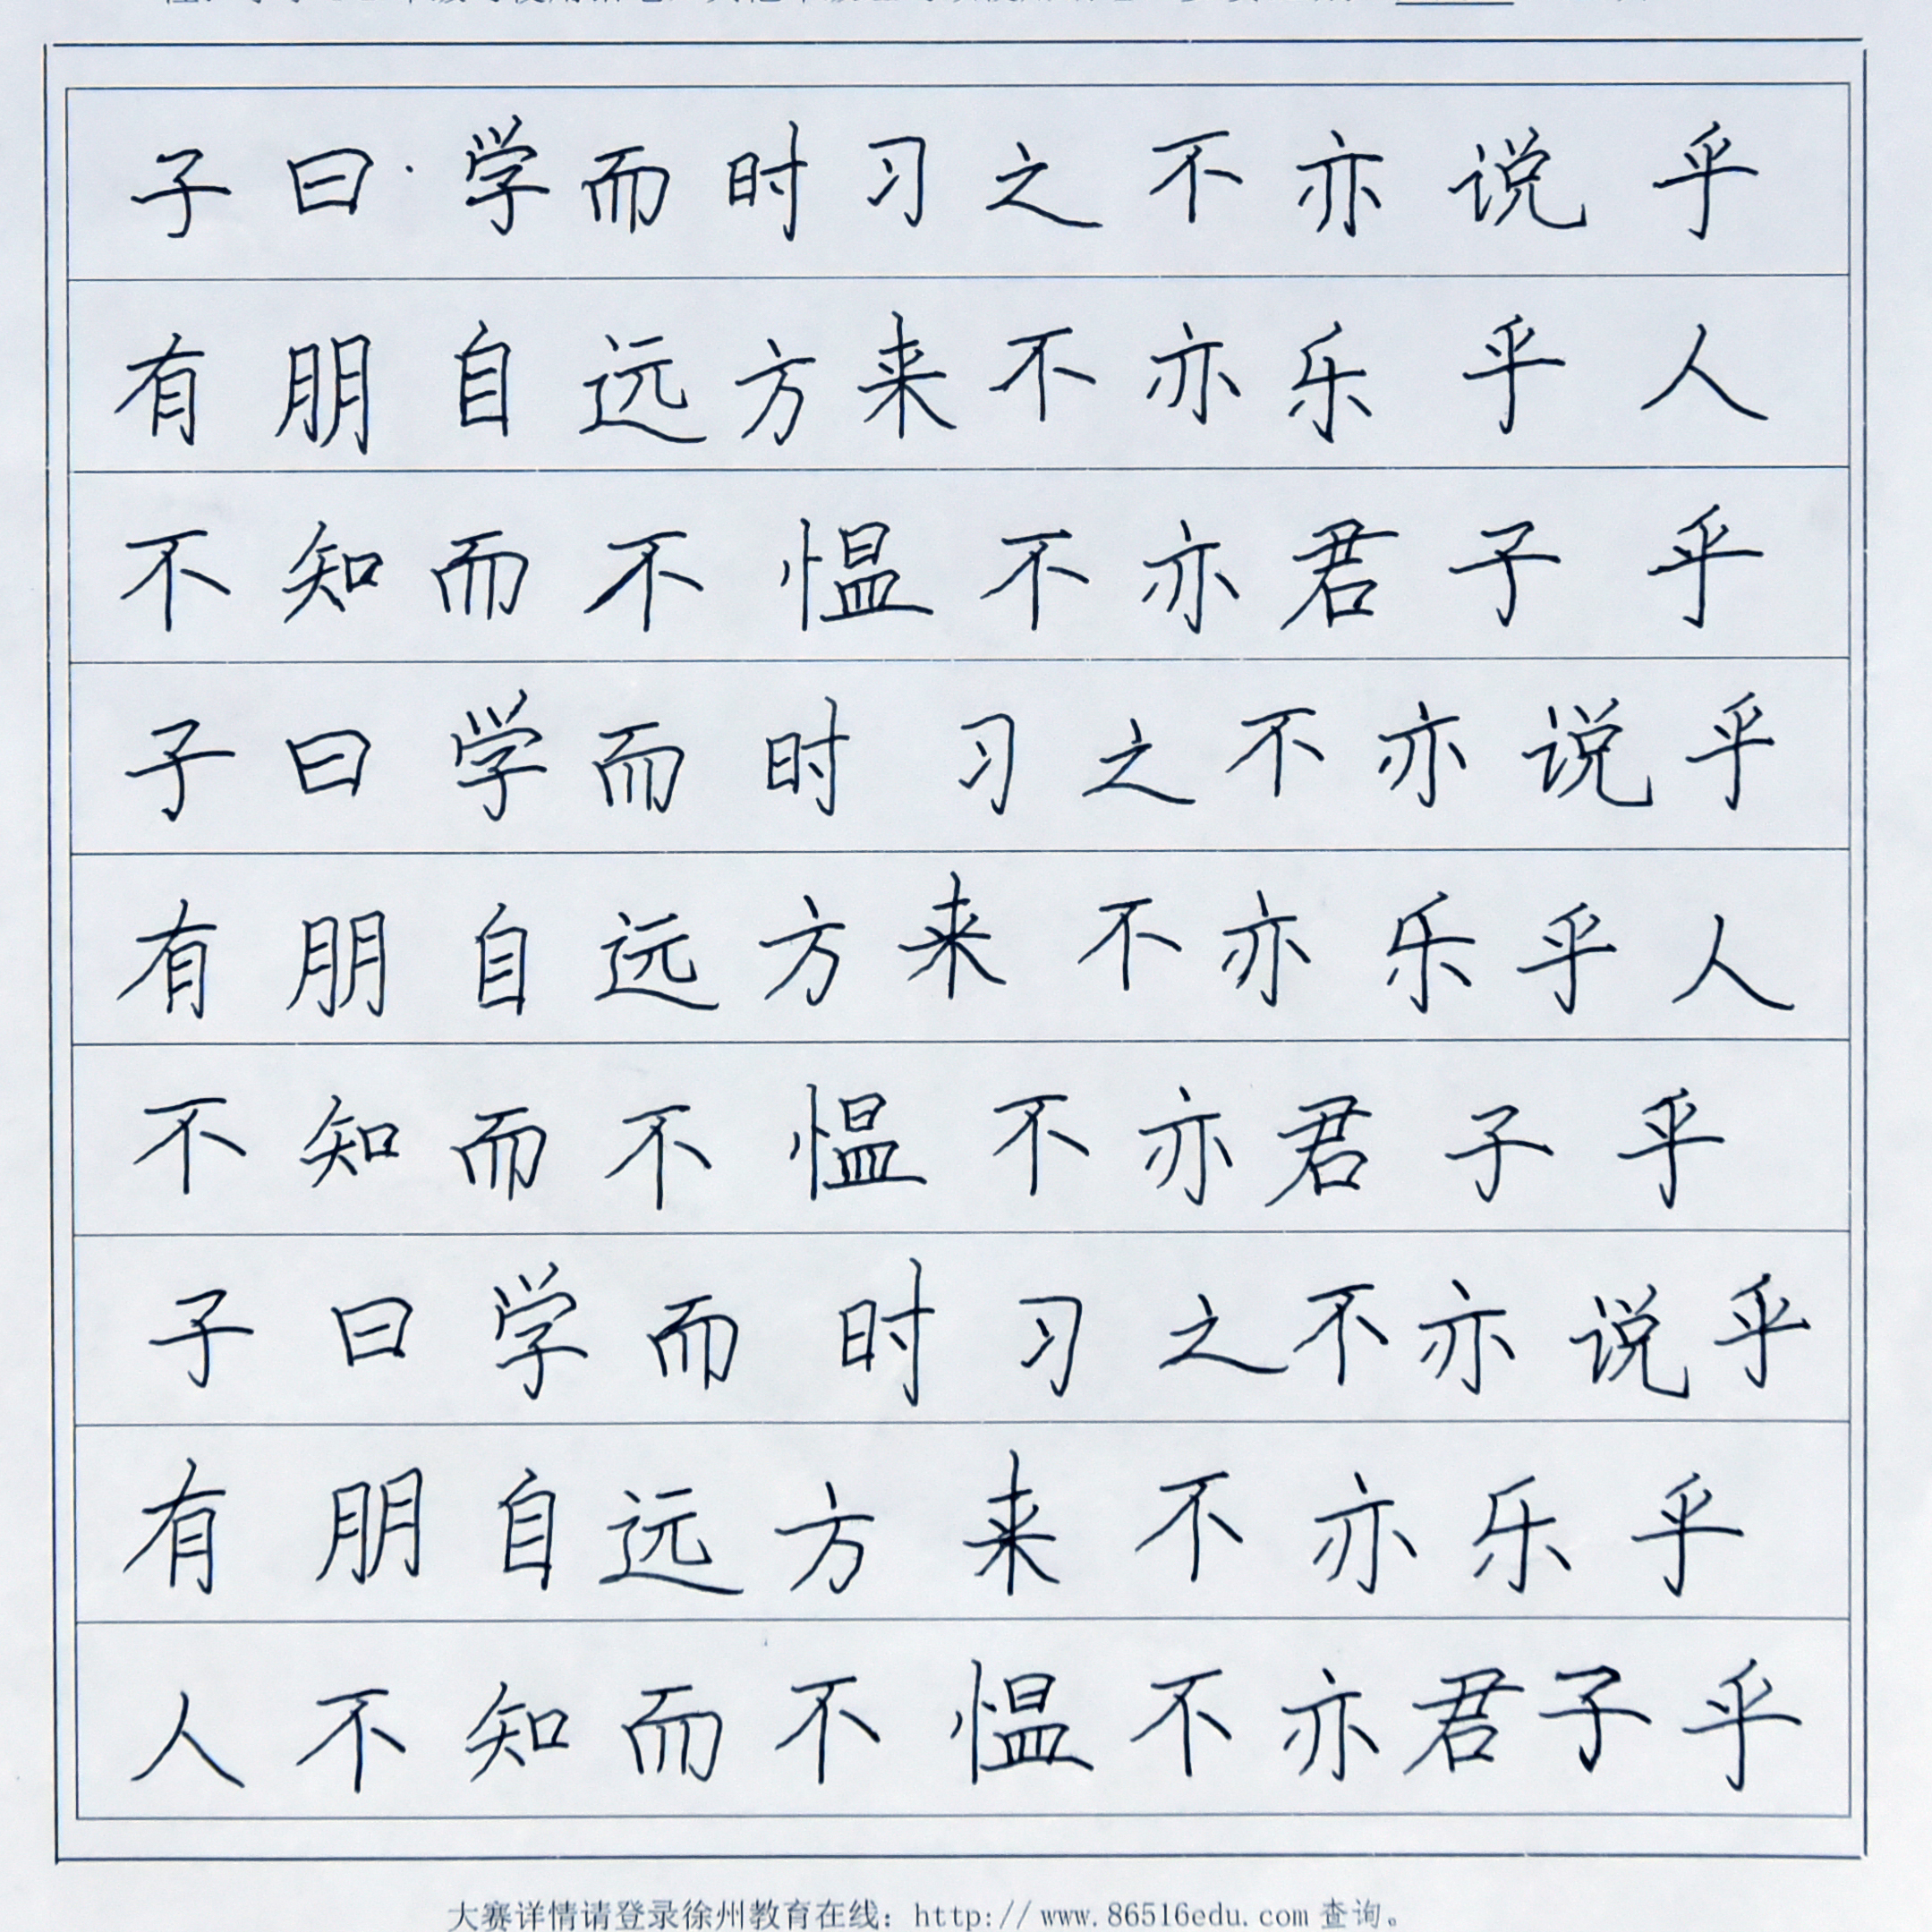 子曰·学而时习之不亦说乎
有朋自远方来不亦乐乎人
不知而不愠不亦君子乎
子曰学而时习之不亦说乎
有朋自远方来不亦乐乎人
不知而不愠不亦君子乎
子曰学而时习之不亦说乎
有朋自远方来不亦乐乎
人不知而不愠不亦君子乎
大赛详情请登录徐州教育在线：http://www.86516edu.com查询。